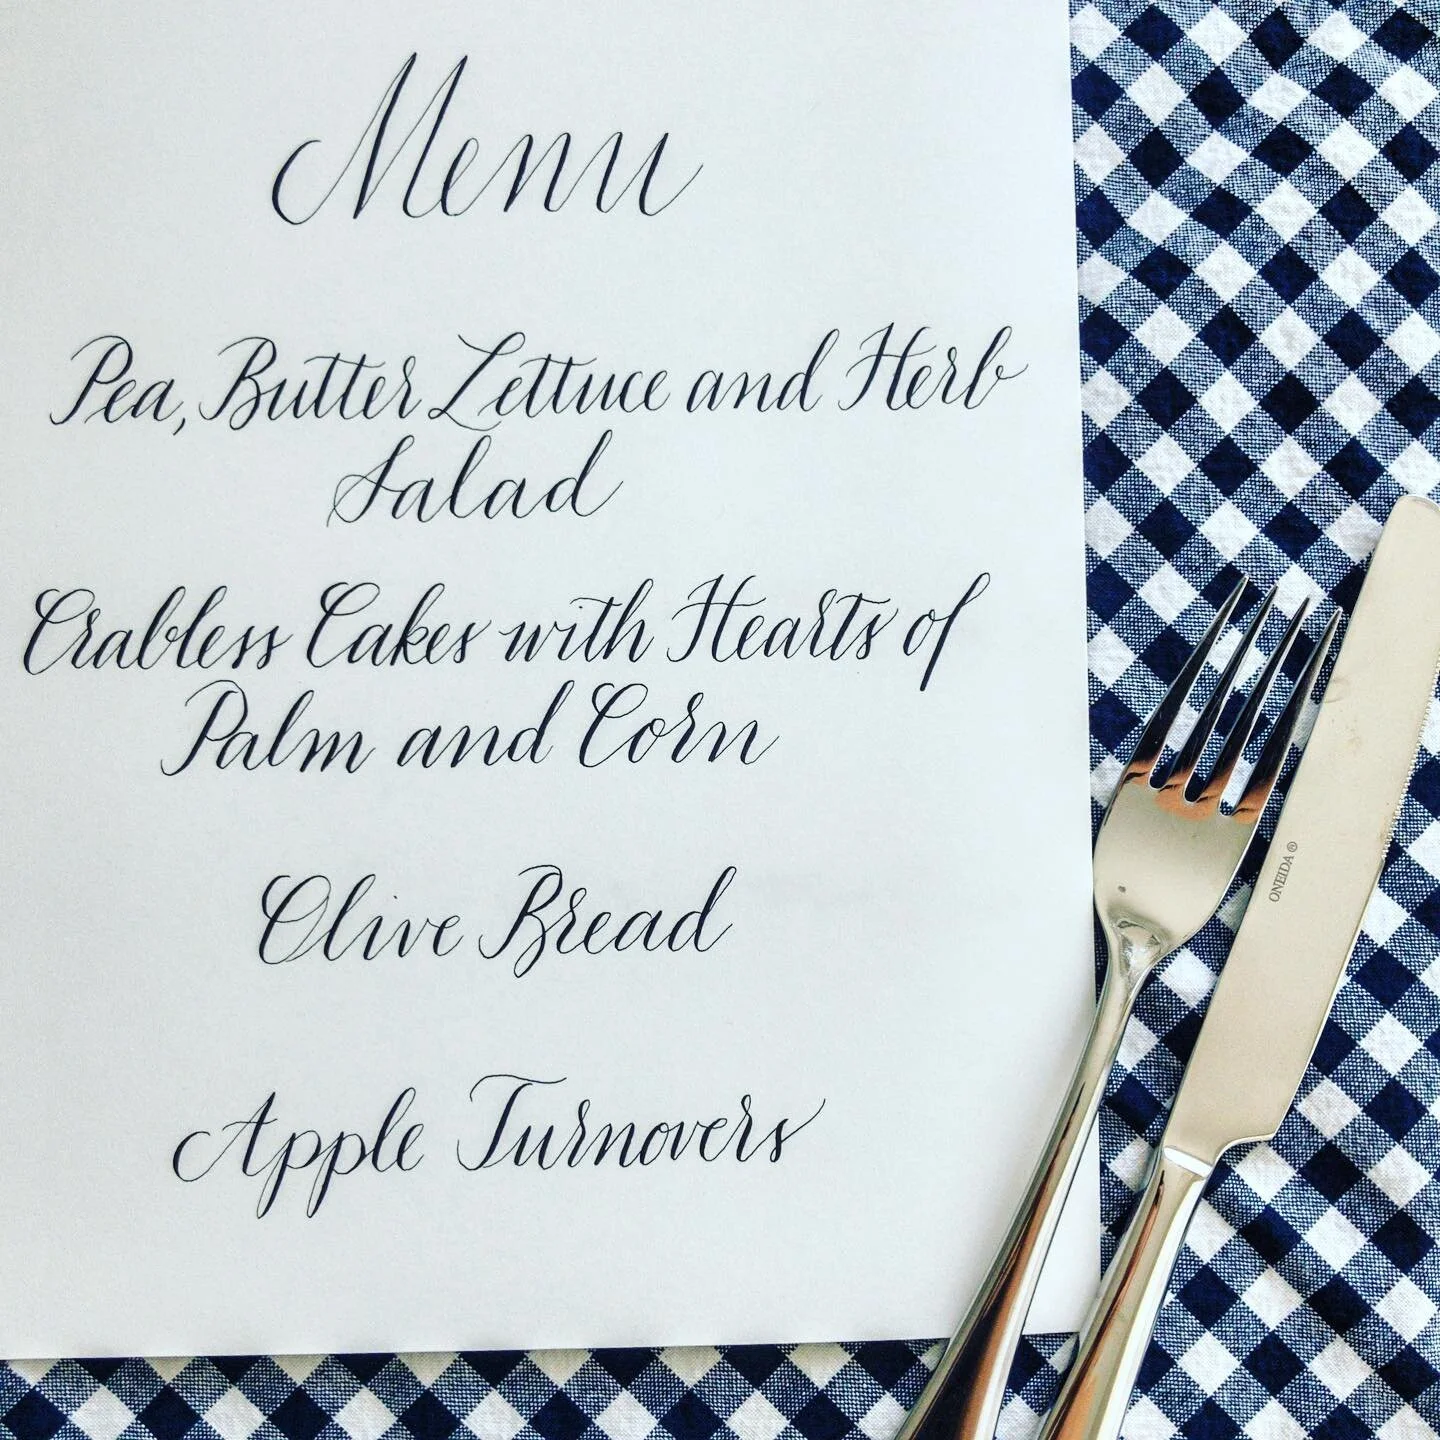 Menu
Pea, Butter Lettuce and Herb
Salad
Crabless Cakes with Hearts of
Palm and Corn
Olive Bread
Apple Turnovers
ONEIDA®